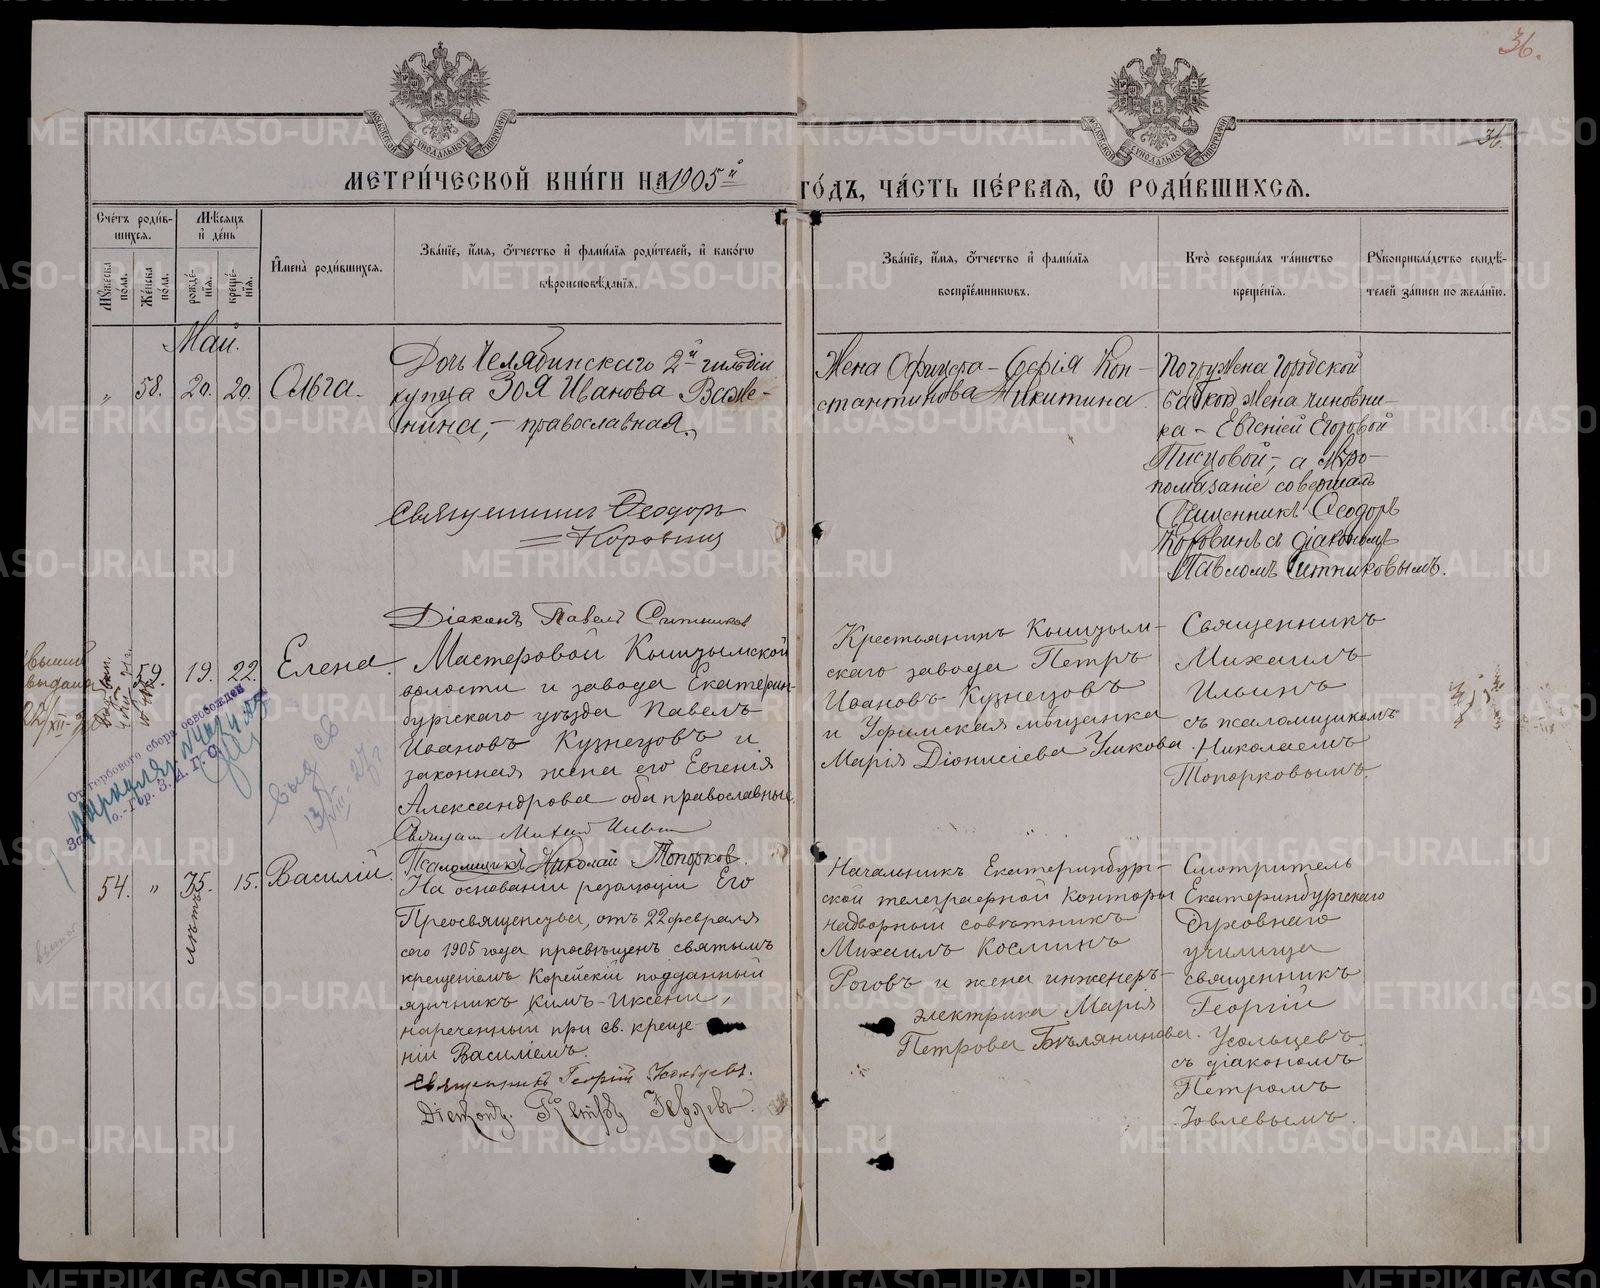 36.
36.
МЕТРИ́ЧЕСКОЙ КНИ́ГИ НА 1905й ГО́ДЪ, ЧА́СТЬ ПЕ́РВАЯ, Ѿ РОДИ́ВШИХСЯ.
Сче́тъ роди́в-
шихся.
Му́жеска по́ла.
Же́нска по́ла.
Мѣ́сяцъ
и҆ де́нь
рожде́-
нїя.
креще́-
нїя.
И҆мена̀ роди́вшихся.
Зва́нїе, и҆́мя, ѻ҆́тчество и҆ фами́лїя роди́телей, и҆ како́гѡ
вѣроисповѣ́данїя.
Зва́нїе, и҆́мя, ѻ҆́тчество и҆ фами́лїя
воспрїе́мниковъ.
Кто̀ соверша́лъ та́инство
креще́нїя.
Рꙋкоприкла́дство свидѣ́-
телей за́писи по жела́нїю.
Май.
„ 58. 20. 20. Ольга.
Дочь Челябинскаго 2й гильдіи
купца Зоя Иванова Важе-
нина, – православная.
Священникъ Ѳеодоръ
Коровинъ
Діаконъ Павелъ Ситниковъ
Жена Офицера – Софія Кон-
стантинова Никитина
Погружена городской
бабкой жена чиновни-
ка – Евгеніей Егоровой
Писцовой, а муро-
помазаніе совершалъ
Священникъ Ѳеодоръ
Коровинъ съ діакономъ
Павломъ Ситниковымъ.
59. 19. 22. Елена.
Мастеровой Кыштымской
волости и завода Екатерин-
бургскаго уѣзда Павелъ
Ивановъ Кузнецовъ и
законная жена его Евгенія
Александрова оба православные.
Священ. Михаил Ильин
Псаломщикъ Николай Топорков.
Крестьянинъ Кыштым-
скаго завода Петръ
Ивановъ Кузнецовъ
и Уфимская мѣщанка
Марія Діонисіева Ушкова.
Священникъ
Михаилъ
Ильинъ
съ псаломщикомъ
Николаемъ
Топорковымъ.
выдана
От гербового сбора освобожден
54. „ 35. 15. Василій.
лѣтъ
На основаніи резолюціи Его
Преосвященства, отъ 22 февраля
сего 1905 года просвѣщенъ святымъ
крещеніемъ Корейскій подданный
язычникъ Кимъ-Иксени,
нареченный при св. креще-
ніи Василіемъ.
Священникъ Георгій
Діаконъ Петръ Іовлевъ.
Начальникъ Екатеринбург-
ской телеграфной Конторы
надворный совѣтникъ
Михаилъ Косминъ
Роговъ и жена инженеръ-
электрика Марія
Петрова Бѣлянинова.
Смотритель
Екатеринбургскаго
Духовнаго
училища
священникъ
Георгій
Усольцевъ
съ діакономъ
Петромъ
Іовлевымъ.
METRIKI.GASO-URAL.RU